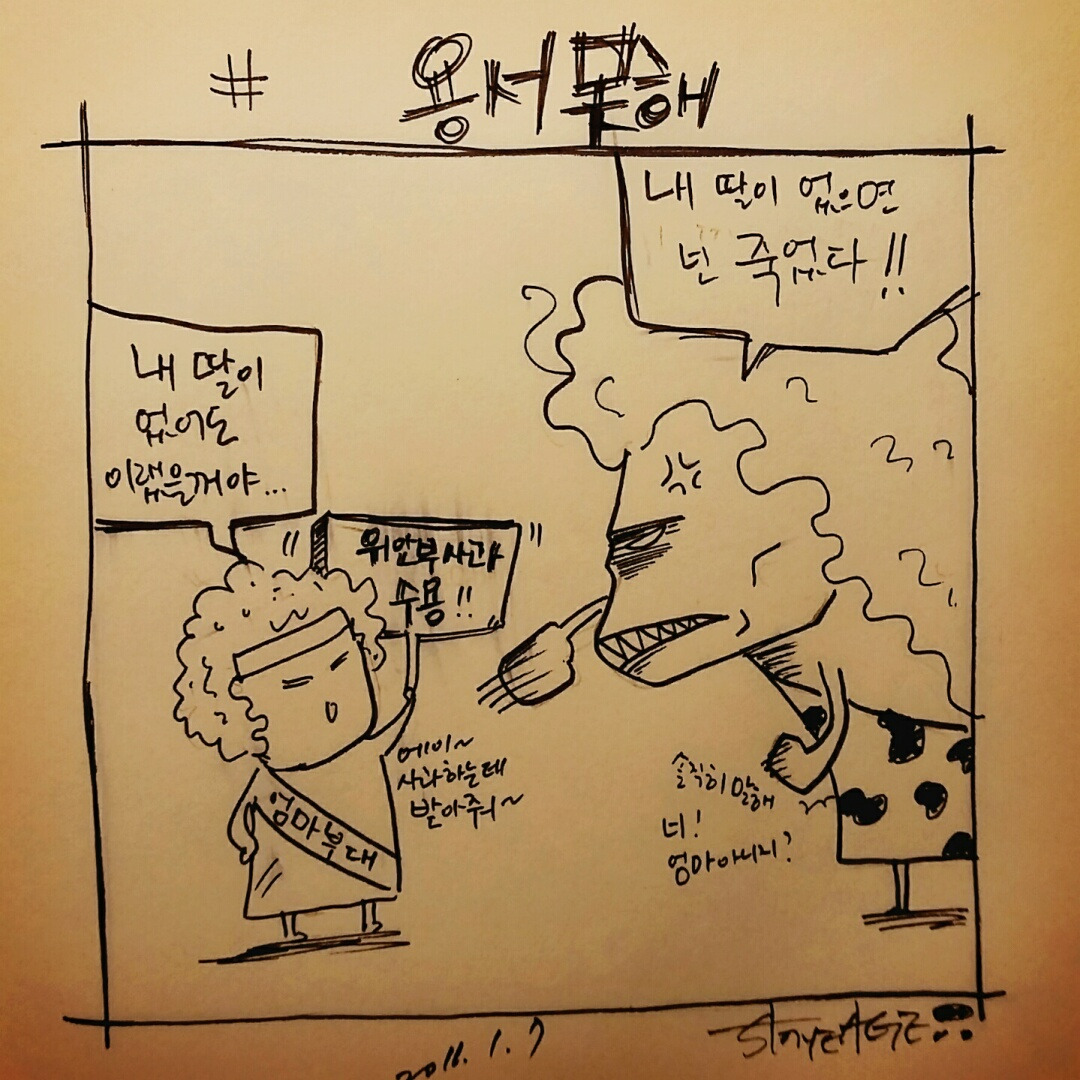 # 용서못해
내 딸이 없으면
넌 죽었다!!
내 딸이
없어도
이랬을거야...
위안부 사과
수용!!
에이~
사과하는데
받아줘~
엄마부대
솔직히 말해
너!
엄마 아니지?
2016.1.7